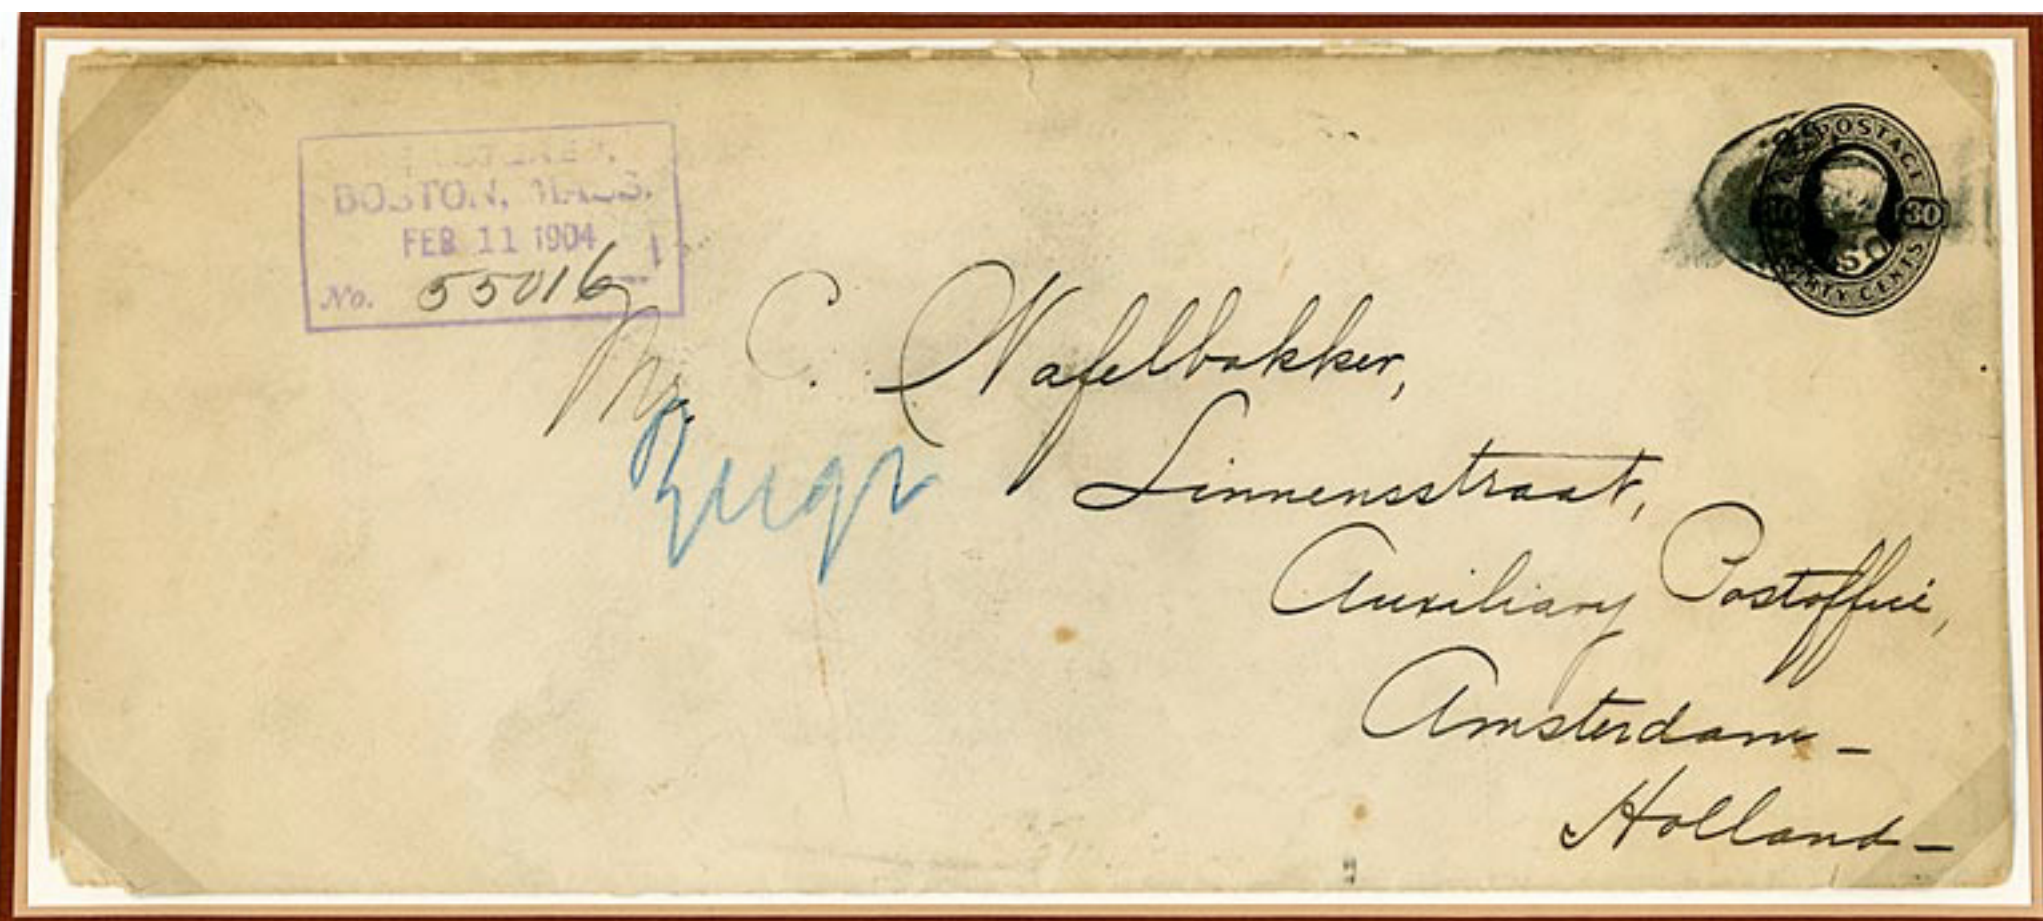 BOSTON, MASS.
FEB 11 1904
No. 55016
POSTAGE
30
CENTS
Mr. C. Nafelbakker,
Linnensstraat,
Auxiliary Postoffice,
Amsterdam –
Holland –